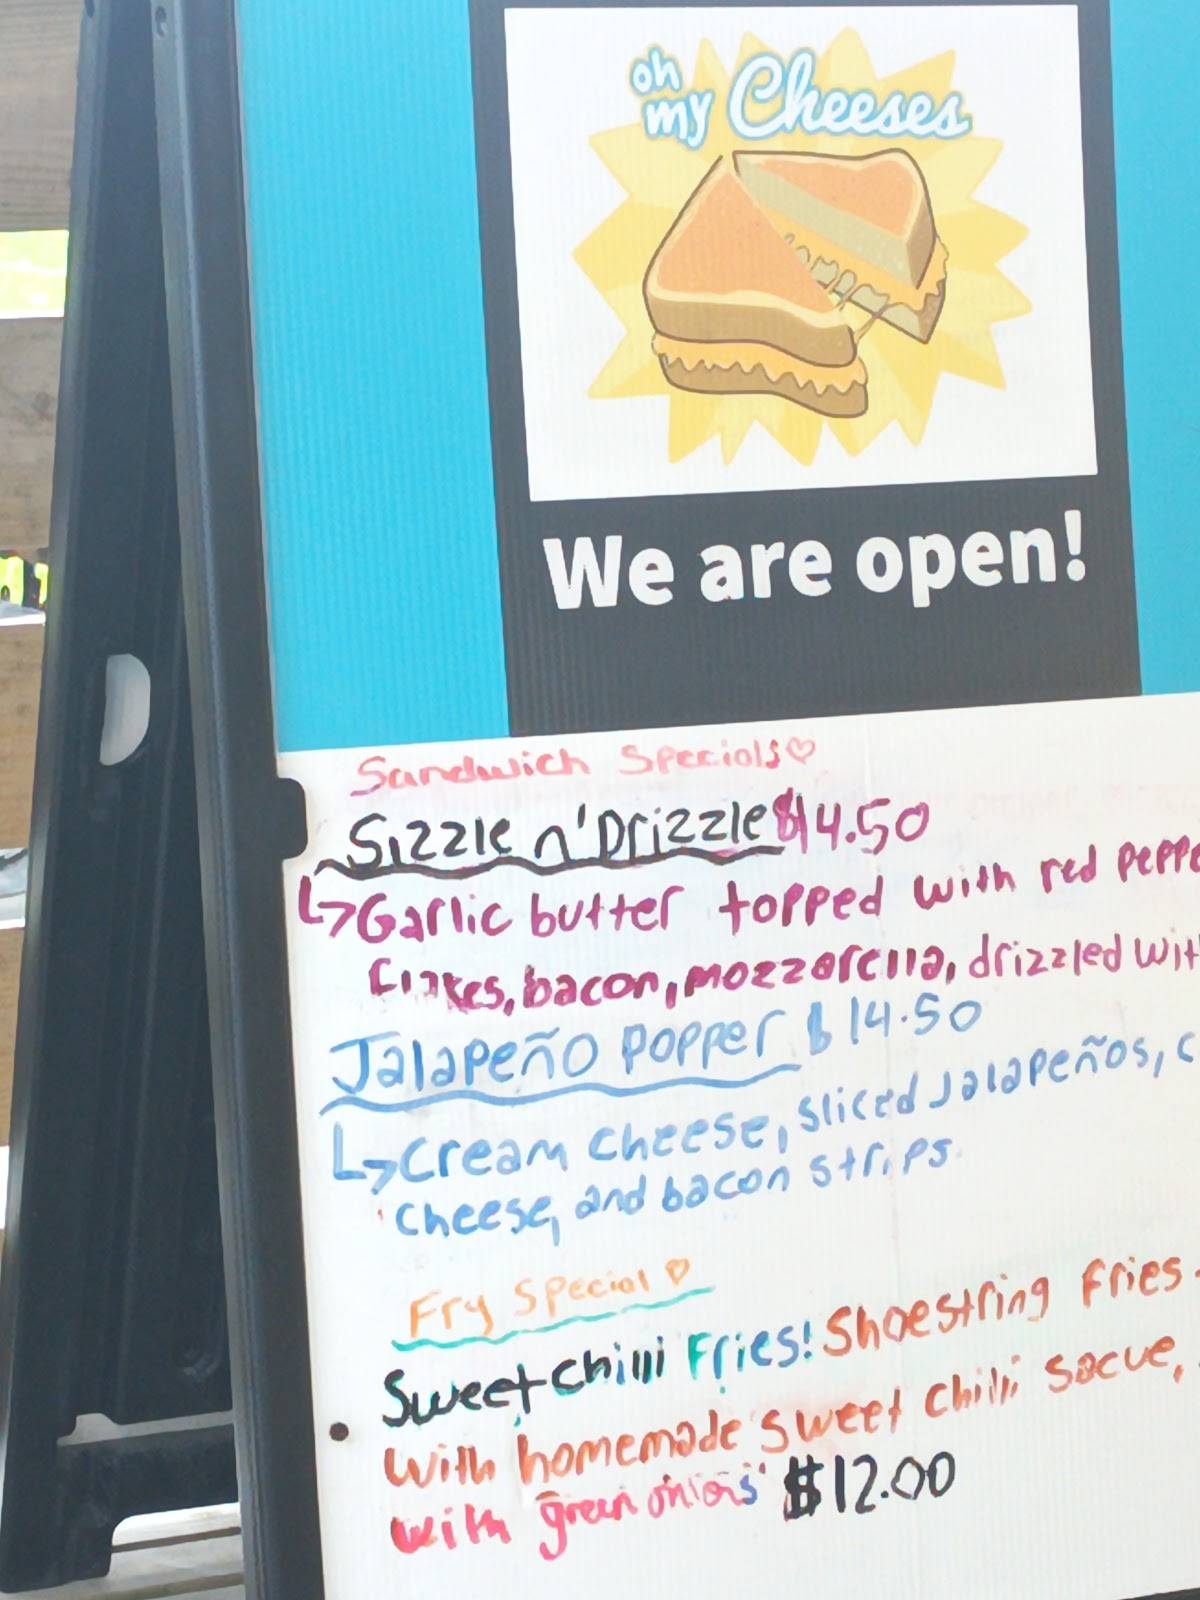 oh
my Cheeses
We are open!
Sandwich Specials♡
Sizzle n' Drizzle $14.50
↳Garlic butter topped with red peppe
flakes, bacon, mozzorella, drizzled wit
Jalapeño Popper $14.50
↳cream cheese, sliced Jalapeños, c
cheese, and bacon strips.
Fry Special ♡
Sweet chilli Fries! Shoestring fries
with homemade sweet chilli sacue,
with green onions $12.00